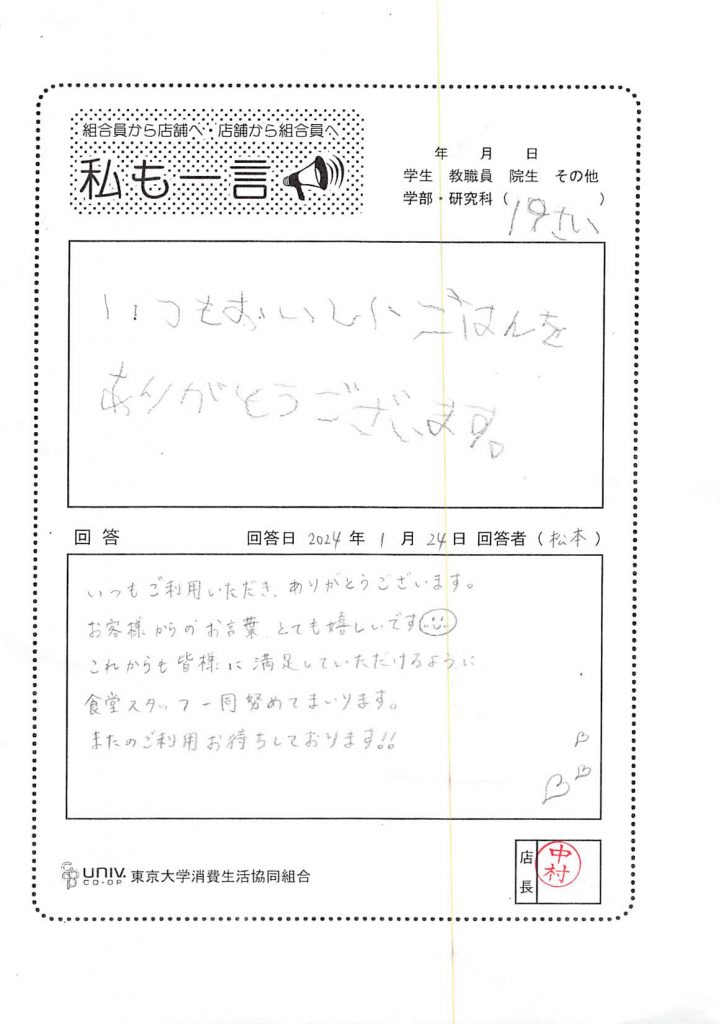 組合員から店舗へ・店舗から組合員へ
私も一言
年 月 日
学生 教職員 院生 その他
学部・研究科( )
19さい
いつもおいしいごはんを
ありがとうございます。
回答 回答日 2024 年 1 月 24 日 回答者(松本)
いつもご利用いただき、ありがとうございます。
お客様からのお言葉、とても嬉しいです
これからも皆様に満足していただけるように
食堂スタッフ一同努めてまいります。
またのご利用お待ちしております!!
UNIV. CO-OP 東京大学消費生活協同組合
店長
中村